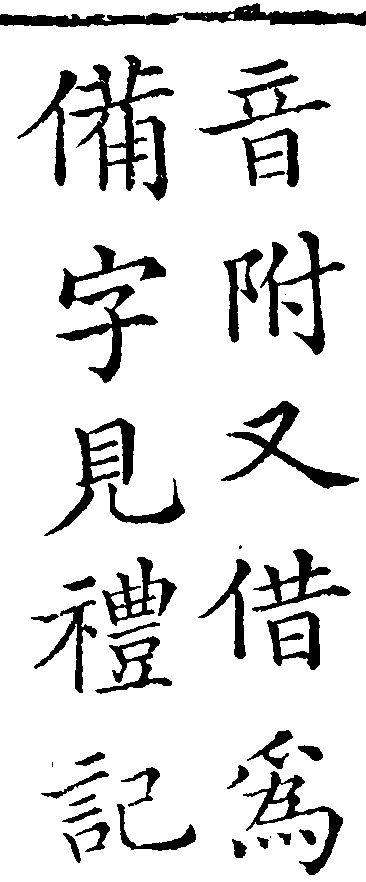 音附又借爲
備字見禮記